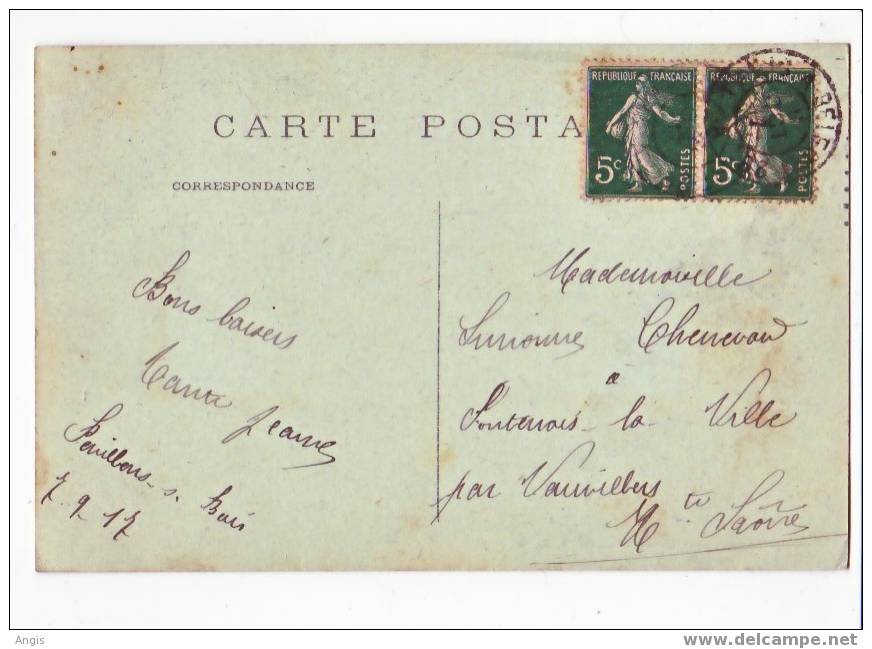 CARTE POSTA
CORRESPONDANCE
REPUBLIQUE FRANÇAISE
5c
POSTES
REPUBLIQUE FRANÇAISE
5c
POSTES
Bons baisers
Tante Jeanne
Pavillons-s. Bois
7-9-17
Mademoiselle
Simonne
à
Fontenois-la-Ville
par Vauvillers
Hte Saône
Angis
www.delcampe.net